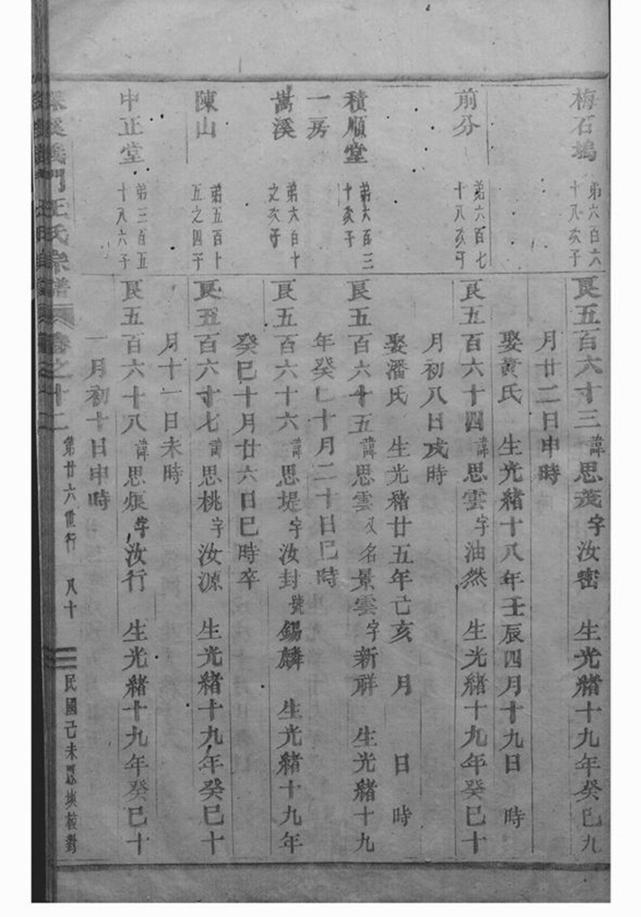 梅石塢 第六百六十八次子
良五百六十三 諱思茂字汝密 生光緒十九年癸巳九
月廿二日申時
娶黃氏 生光緒十八年壬辰四月十九日 時
前分 第六百七十八次子
良五百六十四 諱思雲字油然 生光緒十九年癸巳十
月初八日戌時
娶潘氏 生光緒廿五年己亥 月 日 時
積順堂 第六百三十次子
良五百六十五 諱思雲又名景雲字新祥 生光緒十九
一房
年癸巳十月二十日巳時
蒿溪 第六百十之次子
良五百六十六 諱思堤字汝封號錫麟 生光緒十九年
癸巳十月廿六日巳時卒
陳山 第五百十五之四子
良五百六十七 諱思桃字汝源 生光緒十九年癸巳十
月十一日未時
中正堂 第三百五十八六子
良五百六十八 諱思 字汝行 生光緒十九年癸巳十
一月初十日申時
溪義門王氏宗譜 卷之十二 第廿六世行 八十 民國己未思 校對